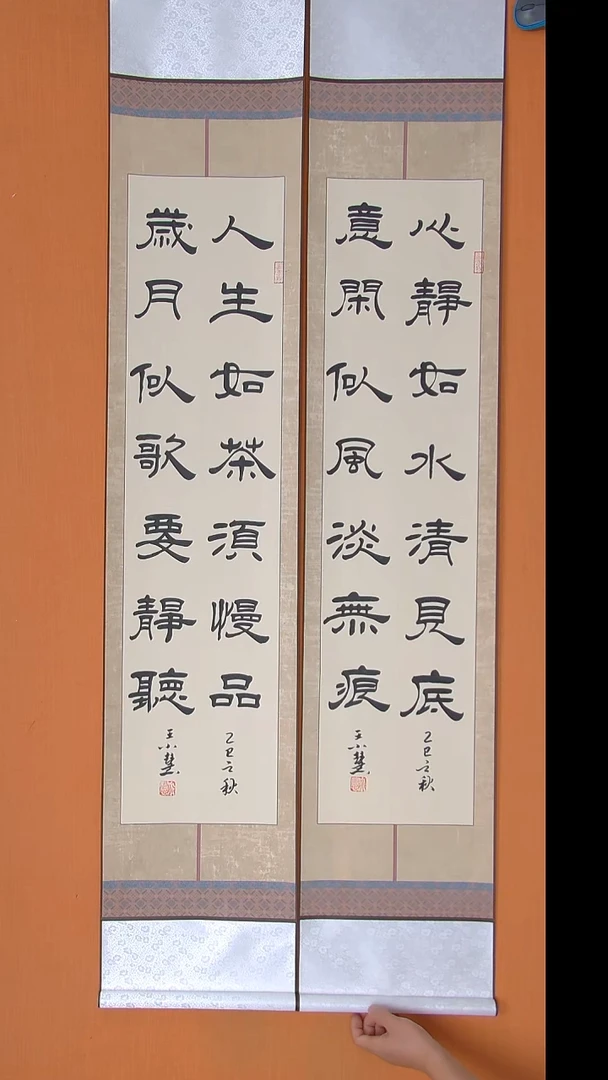 心靜如水清見底
意閑似風淡無痕
乙巳之秋
王小慧
人生如茶須慢品
歲月似歌要靜聽
乙巳之秋
王小慧